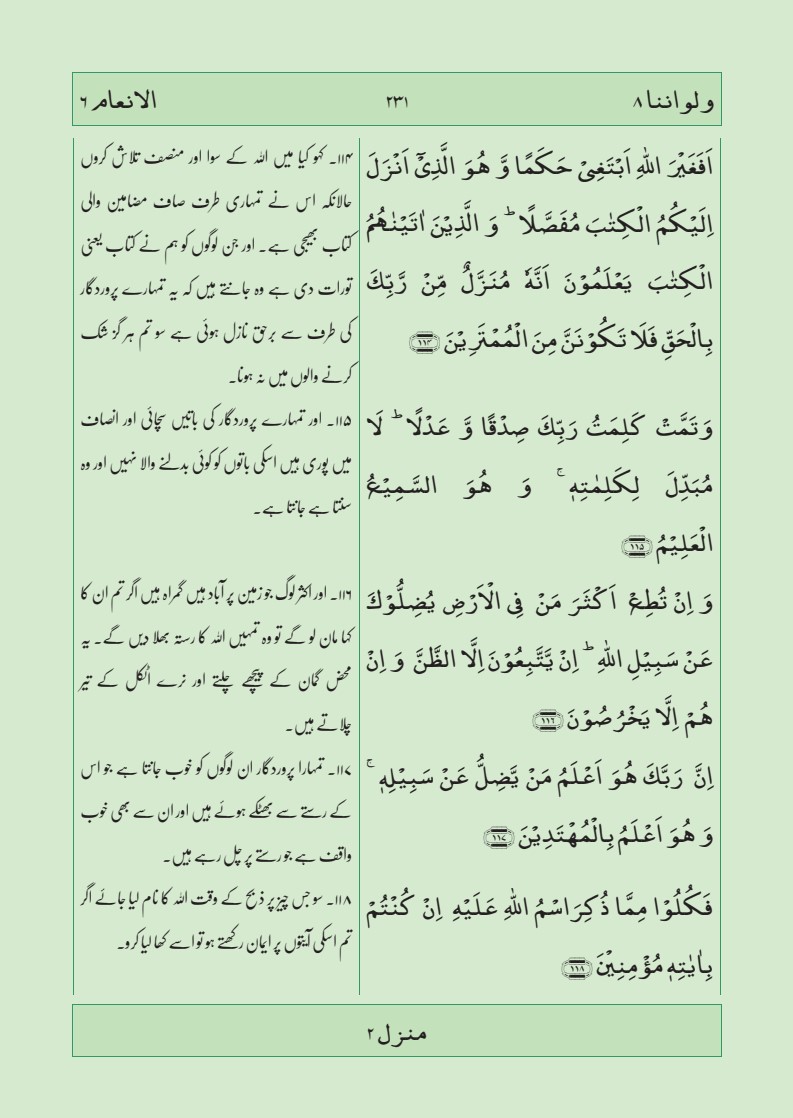 ولواننا ۸
۲۳۱
الانعام ۶
اَفَغَيْرَ اللّٰهِ اَبْتَغِىْ حَكَمًا وَّ هُوَ الَّذِىْۤ اَنْزَلَ
اِلَيْكُمُ الْكِتٰبَ مُفَصَّلًا ؕ وَ الَّذِيْنَ اٰتَيْنٰهُمُ
الْكِتٰبَ يَعْلَمُوْنَ اَنَّهٗ مُنَزَّلٌ مِّنْ رَّبِّكَ
بِالْحَقِّ فَلَا تَكُوْنَنَّ مِنَ الْمُمْتَرِيْنَ ۱۱۴
وَ تَمَّتْ كَلِمَتُ رَبِّكَ صِدْقًا وَّ عَدْلًا ؕ لَا
مُبَدِّلَ لِكَلِمٰتِهٖ ۚ وَ هُوَ السَّمِيْعُ
الْعَلِيْمُ ۱۱۵
وَ اِنْ تُطِعْ اَكْثَرَ مَنْ فِى الْاَرْضِ يُضِلُّوْكَ
عَنْ سَبِيْلِ اللّٰهِ ؕ اِنْ يَّتَّبِعُوْنَ اِلَّا الظَّنَّ وَ اِنْ
هُمْ اِلَّا يَخْرُصُوْنَ ۱۱۶
اِنَّ رَبَّكَ هُوَ اَعْلَمُ مَنْ يَّضِلُّ عَنْ سَبِيْلِهٖ ۚ
وَ هُوَ اَعْلَمُ بِالْمُهْتَدِيْنَ ۱۱۷
فَكُلُوْا مِمَّا ذُكِرَ اسْمُ اللّٰهِ عَلَيْهِ اِنْ كُنْتُمْ
بِاٰيٰتِهٖ مُؤْمِنِيْنَ ۱۱۸
۱۱۴۔ کہو کیا میں اللہ کے سوا اور منصف تلاش کروں
حالانکہ اس نے تمہاری طرف صاف مضامین والی
کتاب بھیجی ہے۔ اور جن لوگوں کو ہم نے کتاب یعنی
تورات دی ہے وہ جانتے ہیں کہ یہ تمہارے پروردگار
کی طرف سے برحق نازل ہوئی ہے سو تم ہرگز شک
کرنے والوں میں نہ ہونا۔
۱۱۵۔ اور تمہارے پروردگار کی باتیں سچائی اور انصاف
میں پوری ہیں اسکی باتوں کو کوئی بدلنے والا نہیں اور وہ
سنتا ہے جانتا ہے۔
۱۱۶۔ اور اکثر لوگ جو زمین پر آباد ہیں گمراہ ہیں اگر تم ان کا
کہا مان لو گے تو وہ تمہیں اللہ کا رستہ بھلا دیں گے۔ یہ
محض گمان کے پیچھے چلتے اور نرے اٹکل کے تیر
چلاتے ہیں۔
۱۱۷۔ تمہارا پروردگار ان لوگوں کو خوب جانتا ہے جو اس
کے رستے سے بھٹکے ہوئے ہیں اور ان سے بھی خوب
واقف ہے جو رستے پر چل رہے ہیں۔
۱۱۸۔ سو جس چیز پر ذبح کے وقت اللہ کا نام لیا جائے اگر
تم اسکی آیتوں پر ایمان رکھتے ہو تو اسے کھا لیا کرو۔
منزل ۲